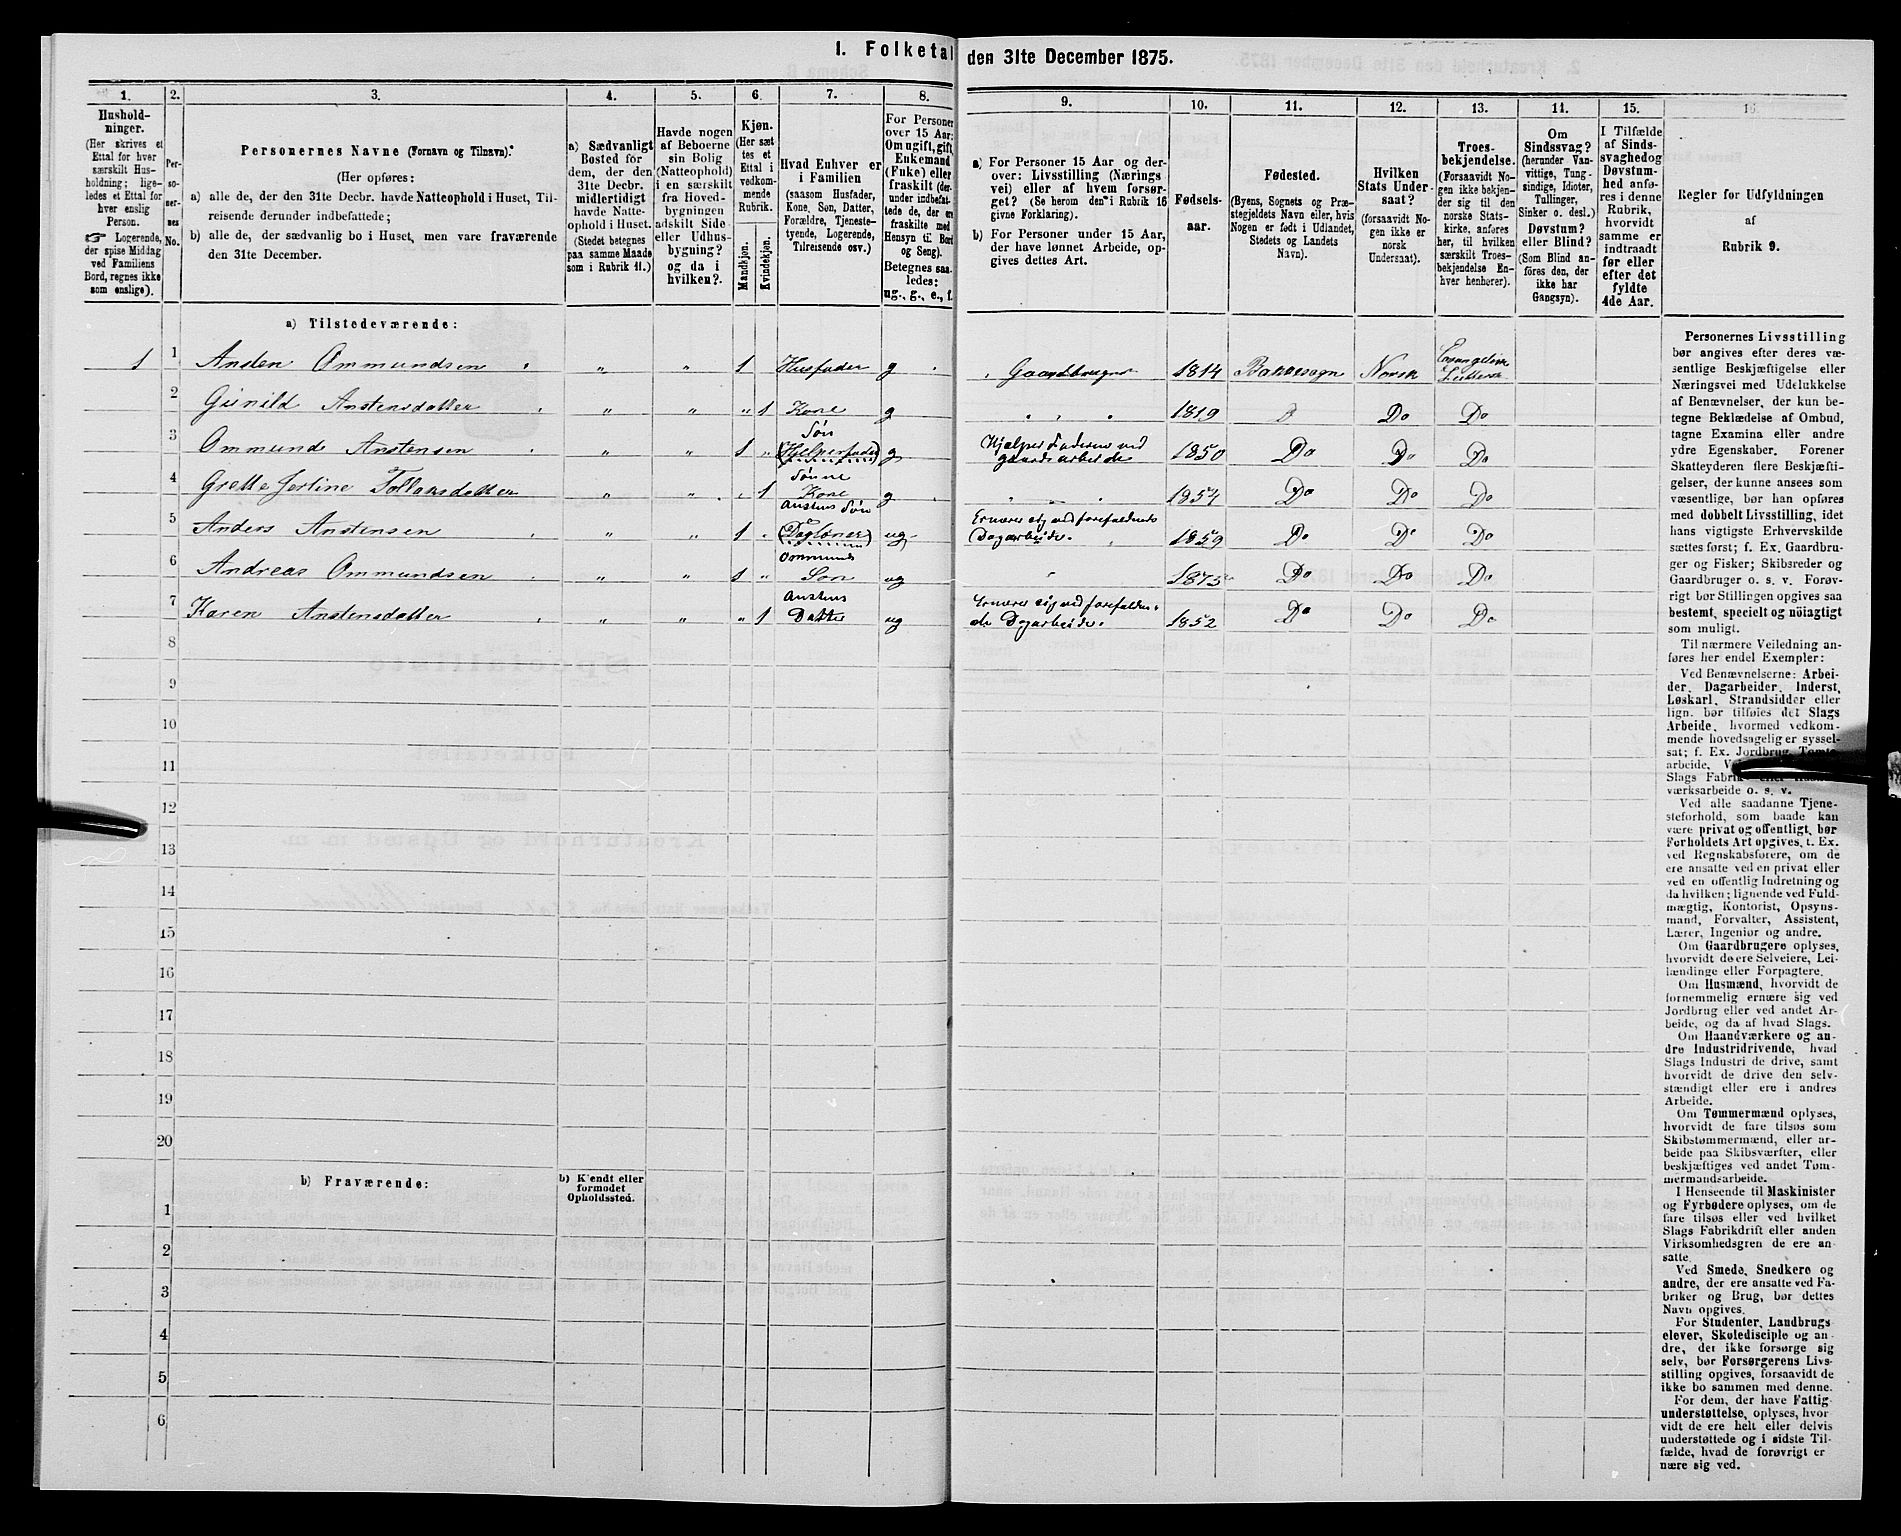 1. Folketal den 31te December 1875.
1. 2. 3. 4. 5. 6. 7. 8. 9. 10. 11. 12. 13. 14. 15. 16
Husholdninger.
(Her skrives et
Ettal for hver
særskilt Husholdning;
ligeledes
et Ettal for
hver enslig
Person.
Logerende,
der spise Middag
ved Familiens
Bord, regnes ikke
som enslige).
Personernes
No.
Personernes Navne (Fornavn og Tilnavn).
(Her opføres:
a) alle de, der den 31te Decbr. havde Natteophold i Huset, Tilreisende
derunder indbefattede;
b) alle de, der sædvanlig bo i Huset, men vare fraværende
den 31te December.
a) Sædvanligt
Bosted for
dem, der den
31te Decbr.
midlertidigt
havde Natteophold
i Huset.
(Stedet betegnes
paa samme Maade
som i Rubrik 11.)
Havde nogen
af Beboerne
sin Bolig
(Natteophold)
i en særskilt
fra Hovedbygningen
adskilt Side
eller Udhusbygning?
og da i
hvilken?
Kjøn.
(Her sættes
et
Ettal i
vedkommende
Rubrik.
Mandkjøn.
Kvindekjøn.
Hvad Enhver er
i Familien
(saasom Husfader,
Kone, Søn, Datter,
Forældre, Tjenestetyende,
Logerende,
Tilreisende osv.)
For Personer
over 15 Aar:
Om ugift, gift,
Enkemand
(Fuke) eller
fraskilt (derunder
indbefattede
de, der ere
fraskilte med
Hensyn til Bord
og Seng).
Betegnes saaledes:
ug., g., e., f.
a) For Personer 15 Aar og derover:
Livsstilling (Næringsvei)
eller af hvem forsørget?
(Se herom den i Rubrik 16
givne Forklaring).
b) For Personer under 15 Aar,
der have lønnet Arbeide, opgives
dettes Art.
Fødselsaar.
Fødested.
(Byens, Sognets og Præstegjeldets
Navn eller, hvis
Nogen er født i Udlandet,
Stedets og Landets
Navn).
Hvilken
Stats Undersaat?
(forsaavidt Nogen
ikke er
norsk
Undersaat).
Troesbekjendelse.
(Forsaavidt Nogen
ikke bekjender
sig til den
norske Statskirke,
anføres
her, til hvilken
særskilt Troesbekjendelse
Enhver
henhører).
Om
Sindssvag?
(herunder Vanvittige,
Tungsindige,
Idioter,
Tullinger,
Sinker o. desl.)
Døvstum?
eller Blind?
(Som Blind anføres
den, der
ikke har
Gangsyn).
I Tilfælde
af Sindssvaghed
og
Døvstumhed
anføres
i denne
Rubrik,
hvorvidt
samme er
indtraadt
før eller
efter det
fyldte
4de Aar.
Regler for Udfyldningen
af
Rubrik 9.
a) Tilstedeværende:
1 1 Ansten Ommundsen " " 1 Husfader g Gaardbruger 1814 Bakkesogn Norsk Evangelisk Luthersk
2 Gunild Anstensdatter " " " 1 Kone g " " " 1819 Do Do
3 Ommund Anstensen " " 1 " Søn (Hjelperfader) g Hjælper Faderen ved gaardsarbeide 1850 Do Do Do
4 Grethe Jertine Tollaksdatter " " " 1 Sønne Kone g " " " 1854 Do Do Do
5 Anders Anstensen " " 1 " Anstens Søn (Dagløner) ug Ernærer sig ved forefaldende Dagarbeide. 1859 Do Do Do
6 Andreas Ommundsen " " 1 " Ommunds Søn ug " 1875 Do Do Do
7 Karen Anstensdatter " " " 1 Anstens Datter ug Ernærer sig ved forefaldende Dagarbeide. 1852 Do Do Do
8
9
10
11
12
13
14
15
16
17
18
19
20
b) Fraværende:
b) Kjendt eller
formodet
Opholdssted.
1
2
3
4
5
6
Personernes Livsstilling
bør angives efter deres væsentlige
Beskjæftigelse eller
Næringsvei med Udelukkelse
af Benævnelser, der kun betegne
Beklædelse af Ombud,
tagne Examina eller andre
ydre Egenskaber. Forener
Skatteyderen flere Beskjæftigelser,
der kunne ansees som
væsentlige, bør han opføres
med dobbelt Livsstilling, idet
hans vigtigste Erhvervskilde
sættes først; f. Ex. Gaardbruger
og Fisker; Skibsreder og
Gaardbruger o. s. v. Forøvrigt
bør Stillingen opgives saa
bestemt, specielt og nøiagtigt
som muligt.
Til nærmere Veiledning anføres
her endel Exempler:
Ved Benævnelserne: Arbeider,
Dagarbeider, Inderst,
Løskarl, Strandsidder eller
lign. bør tilføies det Slags
Arbeide, hvormed vedkommende
hovedsagelig er sysselsat;
f. Ex. Jordbrug, Tømtearbeide,
Slags Fabrik- eller
værksarbeide o. s. v.
Ved alle saadanne Tjenesteforhold,
som baade kan
være privat og offentligt, bør
Forholdets Art opgives, f. Ex.
ved Regnskabsførere, om de
ere ansatte ved en privat eller
ved en offentlig Indretning og
da hvilken; lignende ved Fuldmægtig,
Kontorist, Opsynsmand,
Forvalter, Assistent,
Lærer, Ingeniør og andre.
Om Gaardbrugere oplyses,
hvorvidt de ere Selveiere, Leilændinge
eller Forpagtere.
Om Husmænd, hvorvidt de
fornemmelig ernære sig ved
Jordbrug eller ved andet Arbeide,
og da af hvad Slags.
Om Haandværkere og andre
Industridrivende, hvad
Slags Industri de drive, samt
hvorvidt de drive den selvstændigt
eller ere i andres
Arbeide.
Om Tømmermænd oplyses,
hvorvidt de fare tilsøs som
Skibstømmermænd, eller arbeide
paa Skibsværfter, eller
beskjæftiges ved andet Tømmermandsarbeide.
I Henseende til Maskinister
og Fyrbødere oplyses, om de
fare tilsøs eller ved hvilket
Slags Fabrikdrift eller anden
Virksomhedsgren de ere ansatte.
Ved Smede, Snedkere og
andre, der ere ansatte ved Fabriker
og Brug, bør dettes
Navn opgives.
For Studenter, Landbrugselever,
Skoledisciple og andre,
der ikke forsørge sig
selv, bør Forsørgerens Livsstilling
opgives, forsaavidt de
ikke bo sammen med denne.
For dem, der have Fattigunderstøttelse,
oplyses, hvorvidt
de ere helt eller delvis
understøttede og i sidste Tilfælde,
hvad de forøvrigt ernære
sig ved.